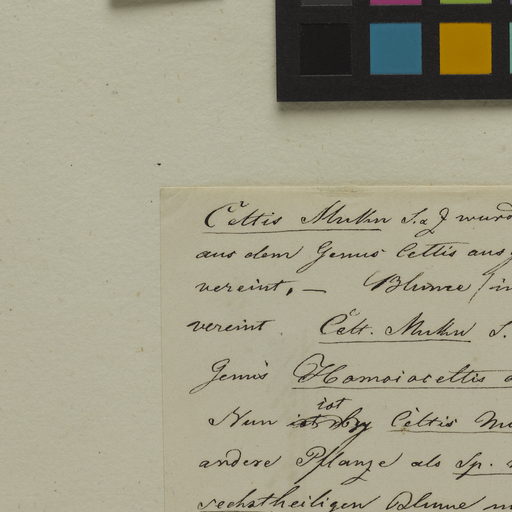 Celtis Muku S. & Z wurd
aus dem Genus Celtis aus
vereint, — Blume / in
vereint Celt. Muku S.
Genus Homoioceltis
Nun ist Celtis Mu
andere Pflanze als Sp.
sechstheiligen Blume